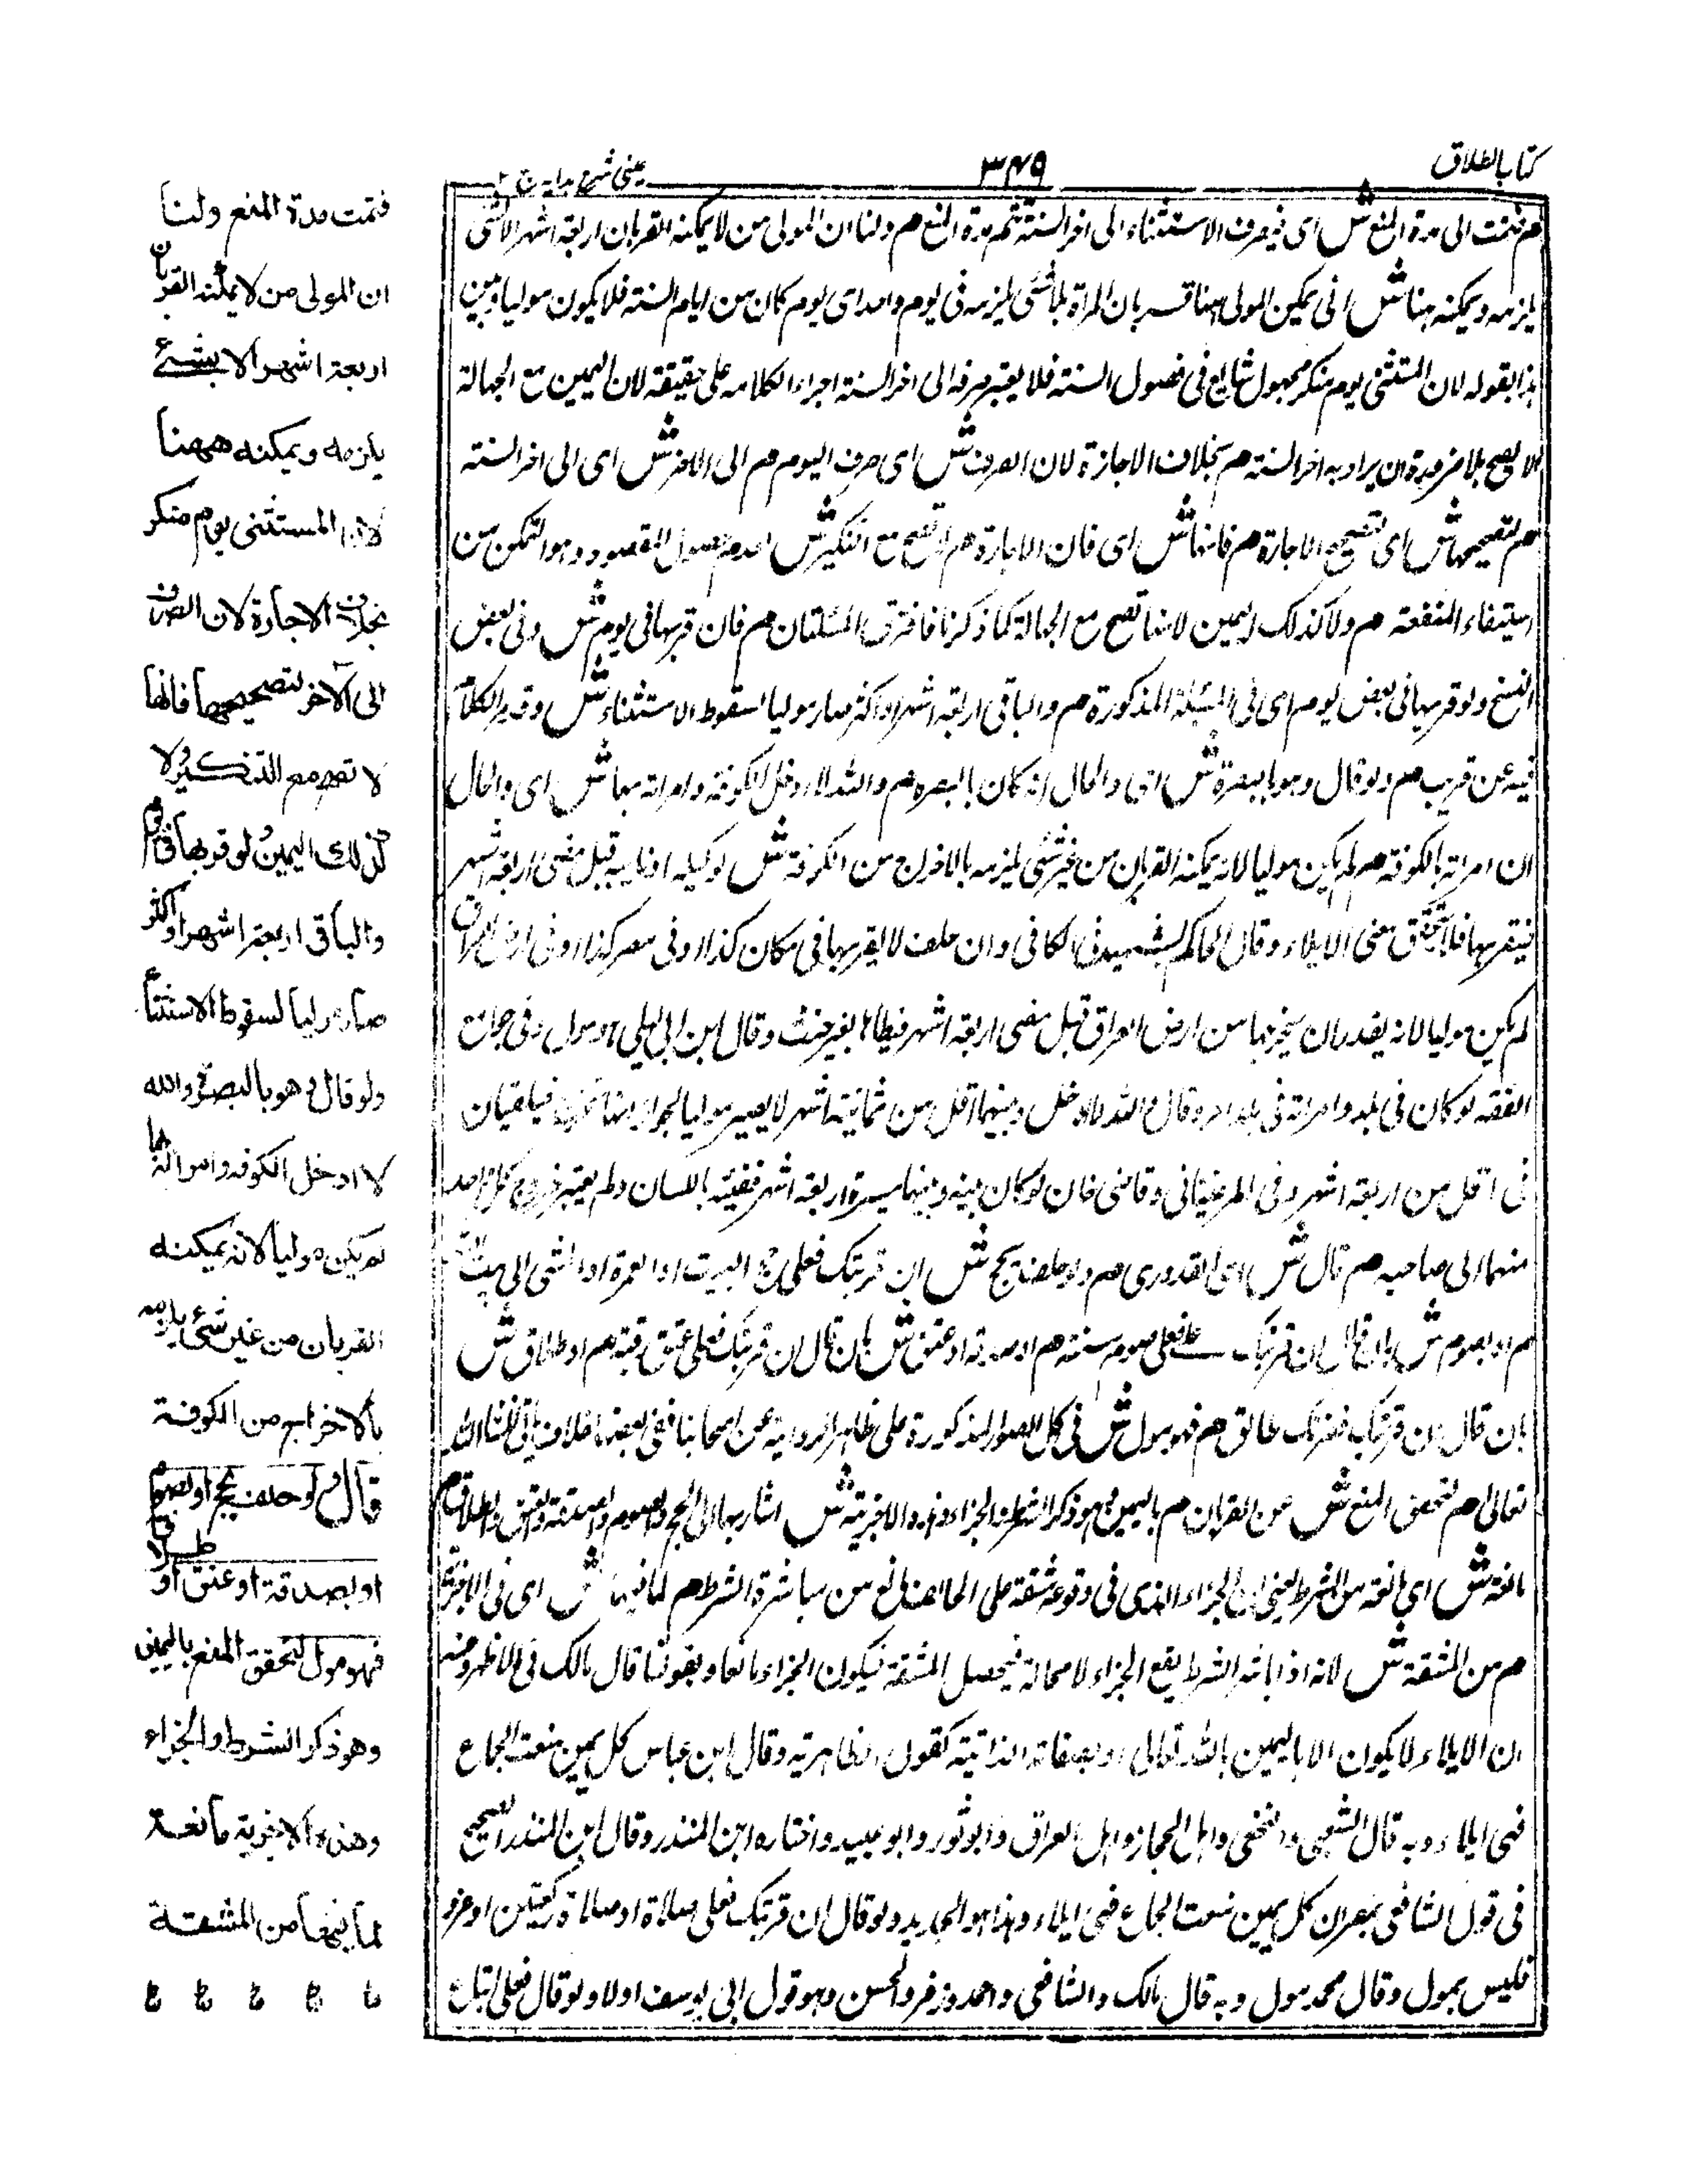 كتاب الطلاق
٣٤٩
عینی شرح ہدایہ ج ٢
م فتمت الى مدة المنع ش اى فیصرف الاستثناء الى اخر السنة فتتم مدة المنع م ولنا ان المولى من لا یمكنه القربان اربعة اشهر الا بشئ
یلزمه ویمكنه ههنا ش اى یمكن المولى ههنا قربان المراة بلا شئ یلزمه فى یوم واحد اى یوم كان من ایام السنة فلا یكون مولیا وبین
هذا بقوله لان المستثنى یوم منكر مجهول شایع فى فصول السنة فلا یعتبر صرفه الى اخر السنة اجراء لكلامه على حقیقته لان الیمین مع الجهالة
یصح بلا ضرورة ان یراد به اخر السنة م بخلاف الاجازة لان الصرف ش اى صرف الیوم م الى الاخر ش اى الى اخر السنة
م لتصحیحها ش اى لتصحیح الاجارة م فانها ش اى فان الاجارة م لا تصح مع التنكیر ش لعدم حصول المقصود وهو التمكن من
استیفاء المنفعة م ولا كذلك الیمین لانها تصح مع الجهالة كما ذكرنا فافترق المسئلتان م فان قربها فى یوم ش وفى بعض
النسخ ولو قربها فى بعض یوم اى فى المسئلة المذكورة م والباقى اربعة اشهر او اكثر صار مولیا لسقوط الاستثناء ش وقد مر الكلام
فیه عن قریب م ولو قال وهو بالبصرة ش اى والحال انه كان بالبصره م والله لا ادخل الكوفة وامراته بها ش اى والحال
ان امراته بالكوفة م لم یكن مولیا لانه یمكنه القربان من غیر شئ یلزمه بالاخراج من الكوفة ش لوكیله او نایبه قبل مضى اربعة اشهر
فیقربها فلا یتحقق معنى الایلاء وقال الحاكم الشهید فى الكافى وان حلف لا یقربها فى مكان كذا او فى مصر كذا او فى ارض العراق
لم یكن مولیا لانه یقدر ان یخرجها من ارض العراق قبل مضى اربعة اشهر فیطاها بغیر حنث وقال ابن ابى لیلى هو مول وفى جوامع
الفقه لو كان فى بلد وامراته فى بلد اخر وقال والله لا ادخل وبینهما اقل من ثمانیة اشهر لا یصیر مولیا لجواز فیلتقیان
فى اقل من اربعة اشهر وفى المرغینانى وقاضى خان لو كان بینه وبینها مسیرة اربعة اشهر ففیئه باللسان ولم یعتبر خروج كل واحد
منهما الى صاحبه م قال ش اى القدورى م ولو حلف بحج ش ان قربتك فعلى حج البیت او العمرة او المشى الى بیت الله
م او بصوم ش بان قال ان قربتك فعلى صوم سنة م او صدقة او عتق ش بان قال ان قربتك فعلى عتق رقبة م او طلاق ش
بان قال ان قربتك فضرتك طالق م فهو مول ش فى كل الصور المذكورة على ظاهر الروایة عن اصحابنا ففى بعضها خلاف یاتى انشاء الله
تعالى م لتحقق المنع ش عن القربان م بالیمین وهو ذكر الشرط والجزاء وهذه الاجزیة ش اشار بها الى الحج والصوم والصدقة والعتق والطلاق م
مانعة ش اى مانعة من الشرط یعنى ان الجزاء الذى فى وقوعه مشقة على الحالف مانع من مباشرة الشرط م لما فیها ش اى فى الاجزیة
م من المشقة ش لانه اذا باشر الشرط یقع الجزاء لا محالة فیحصل المشقة فیكون الجزاء مانعا وبقولنا قال مالك فى الاظهر وعنه
ان الایلاء لا یكون الا بالیمین بالله تعالى او بصفاته الذاتیة كقول الظاهریه وقال ابن عباس كل یمین منعت الجماع
فهى ایلاء وبه قال الشعبى والنخعى واهل الحجاز واهل العراق وابو ثور وابو عبید واختاره ابن المنذر وقال ابن المنذر الصحیح
فى قول الشافعى بمصر ان كل یمین منعت الجماع فهى ایلاء وهذا هو الجدید ولو قال ان قربتك فعلى صلاة او صلاة ركعتین او غزو
فلیس بمول وقال محمد مول وبه قال مالك والشافعى واحمد وزفر والحسن وهو قول ابى یوسف اولا ولو قال فعلى اتباع
فتمت مدة المنع ولنا
ان المولى من لا یمكنه القربان
اربعة اشهر الا بشئ
یلزمه ویمكنه ههنا
لان المستثنى یوم منكر
بخلاف الاجارة لان الصرف
الى الآخر لتصحیحها فانها
لا تصح مع التنكیر ولا
كذلك الیمین ولو قربها فى یوم
والباقى اربعة اشهر او اكثر
صار مولیا لسقوط الاستثناء
ولو قال وهو بالبصرة والله
لا ادخل الكوفه وامراته بها
لم یكن مولیا لانه یمكنه
القربان من غیر شئ یلزمه
بالاخراج من الكوفة
قال ولو حلف بحج او بصوم
او بصدقة او عتق او طلاق
فهو مول لتحقق المنع بالیمین
وهو ذكر الشرط والجزاء
وهذه الاجزیة مانعة
لما فیها من المشقة